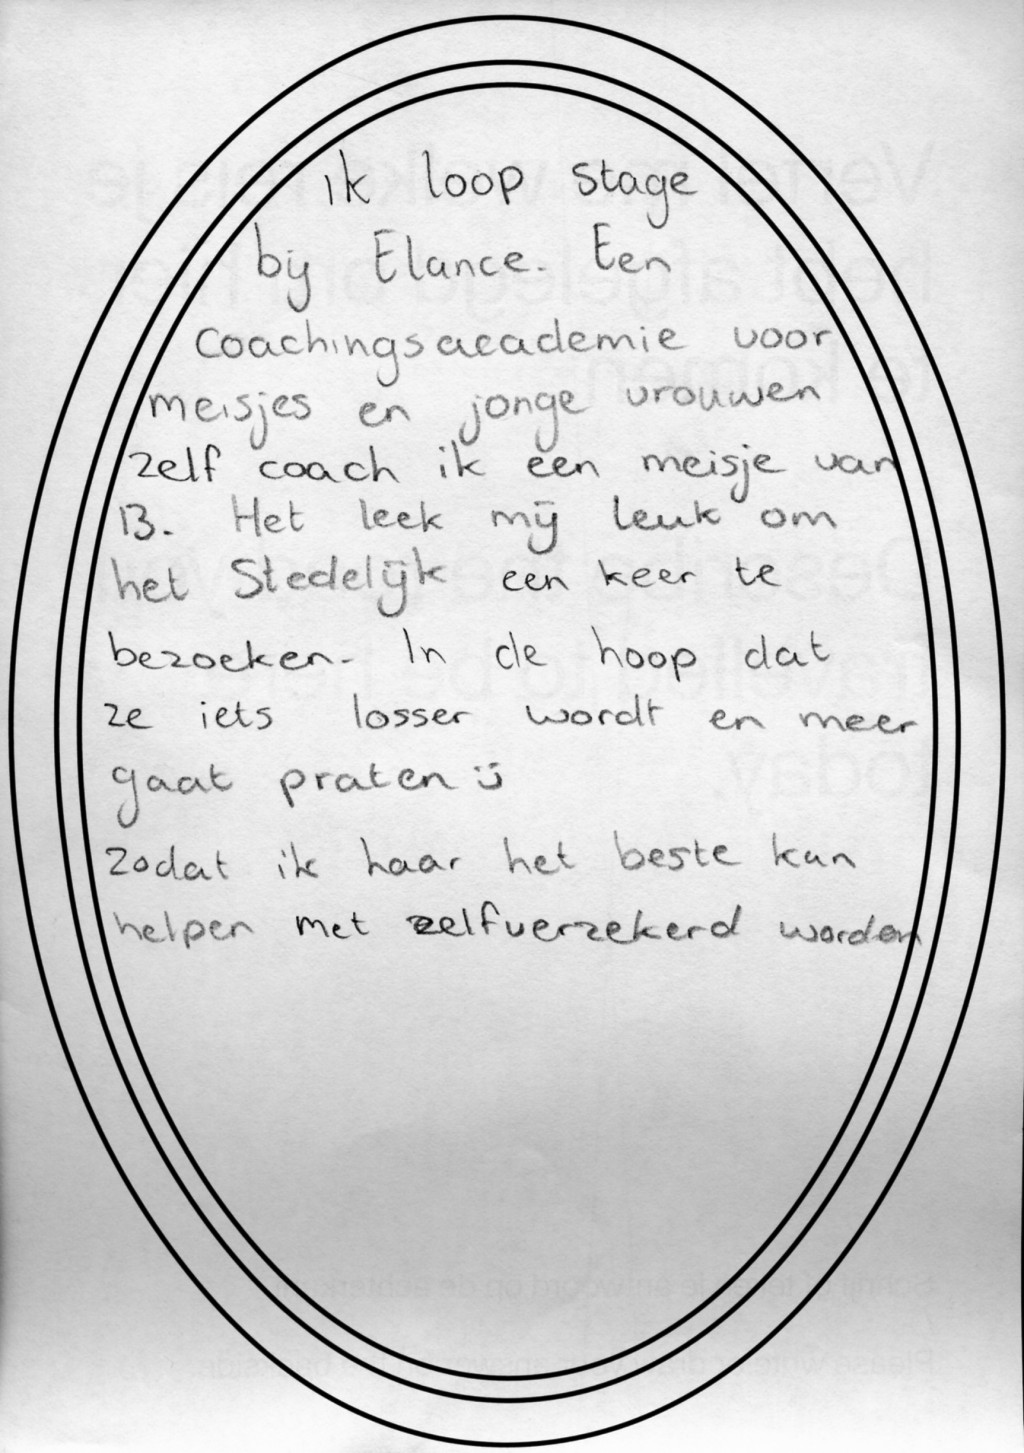 ik loop stage
bij Elance. Een
Coachingsacademie voor
meisjes en jonge vrouwen
zelf coach ik een meisje van
13. Het leek mij leuk om
het Stedelijk een keer te
bezoeken. In de hoop dat
ze iets losser wordt en meer
gaat praten ü
zodat ik haar het beste kan
helpen met zelfverzekerd worden